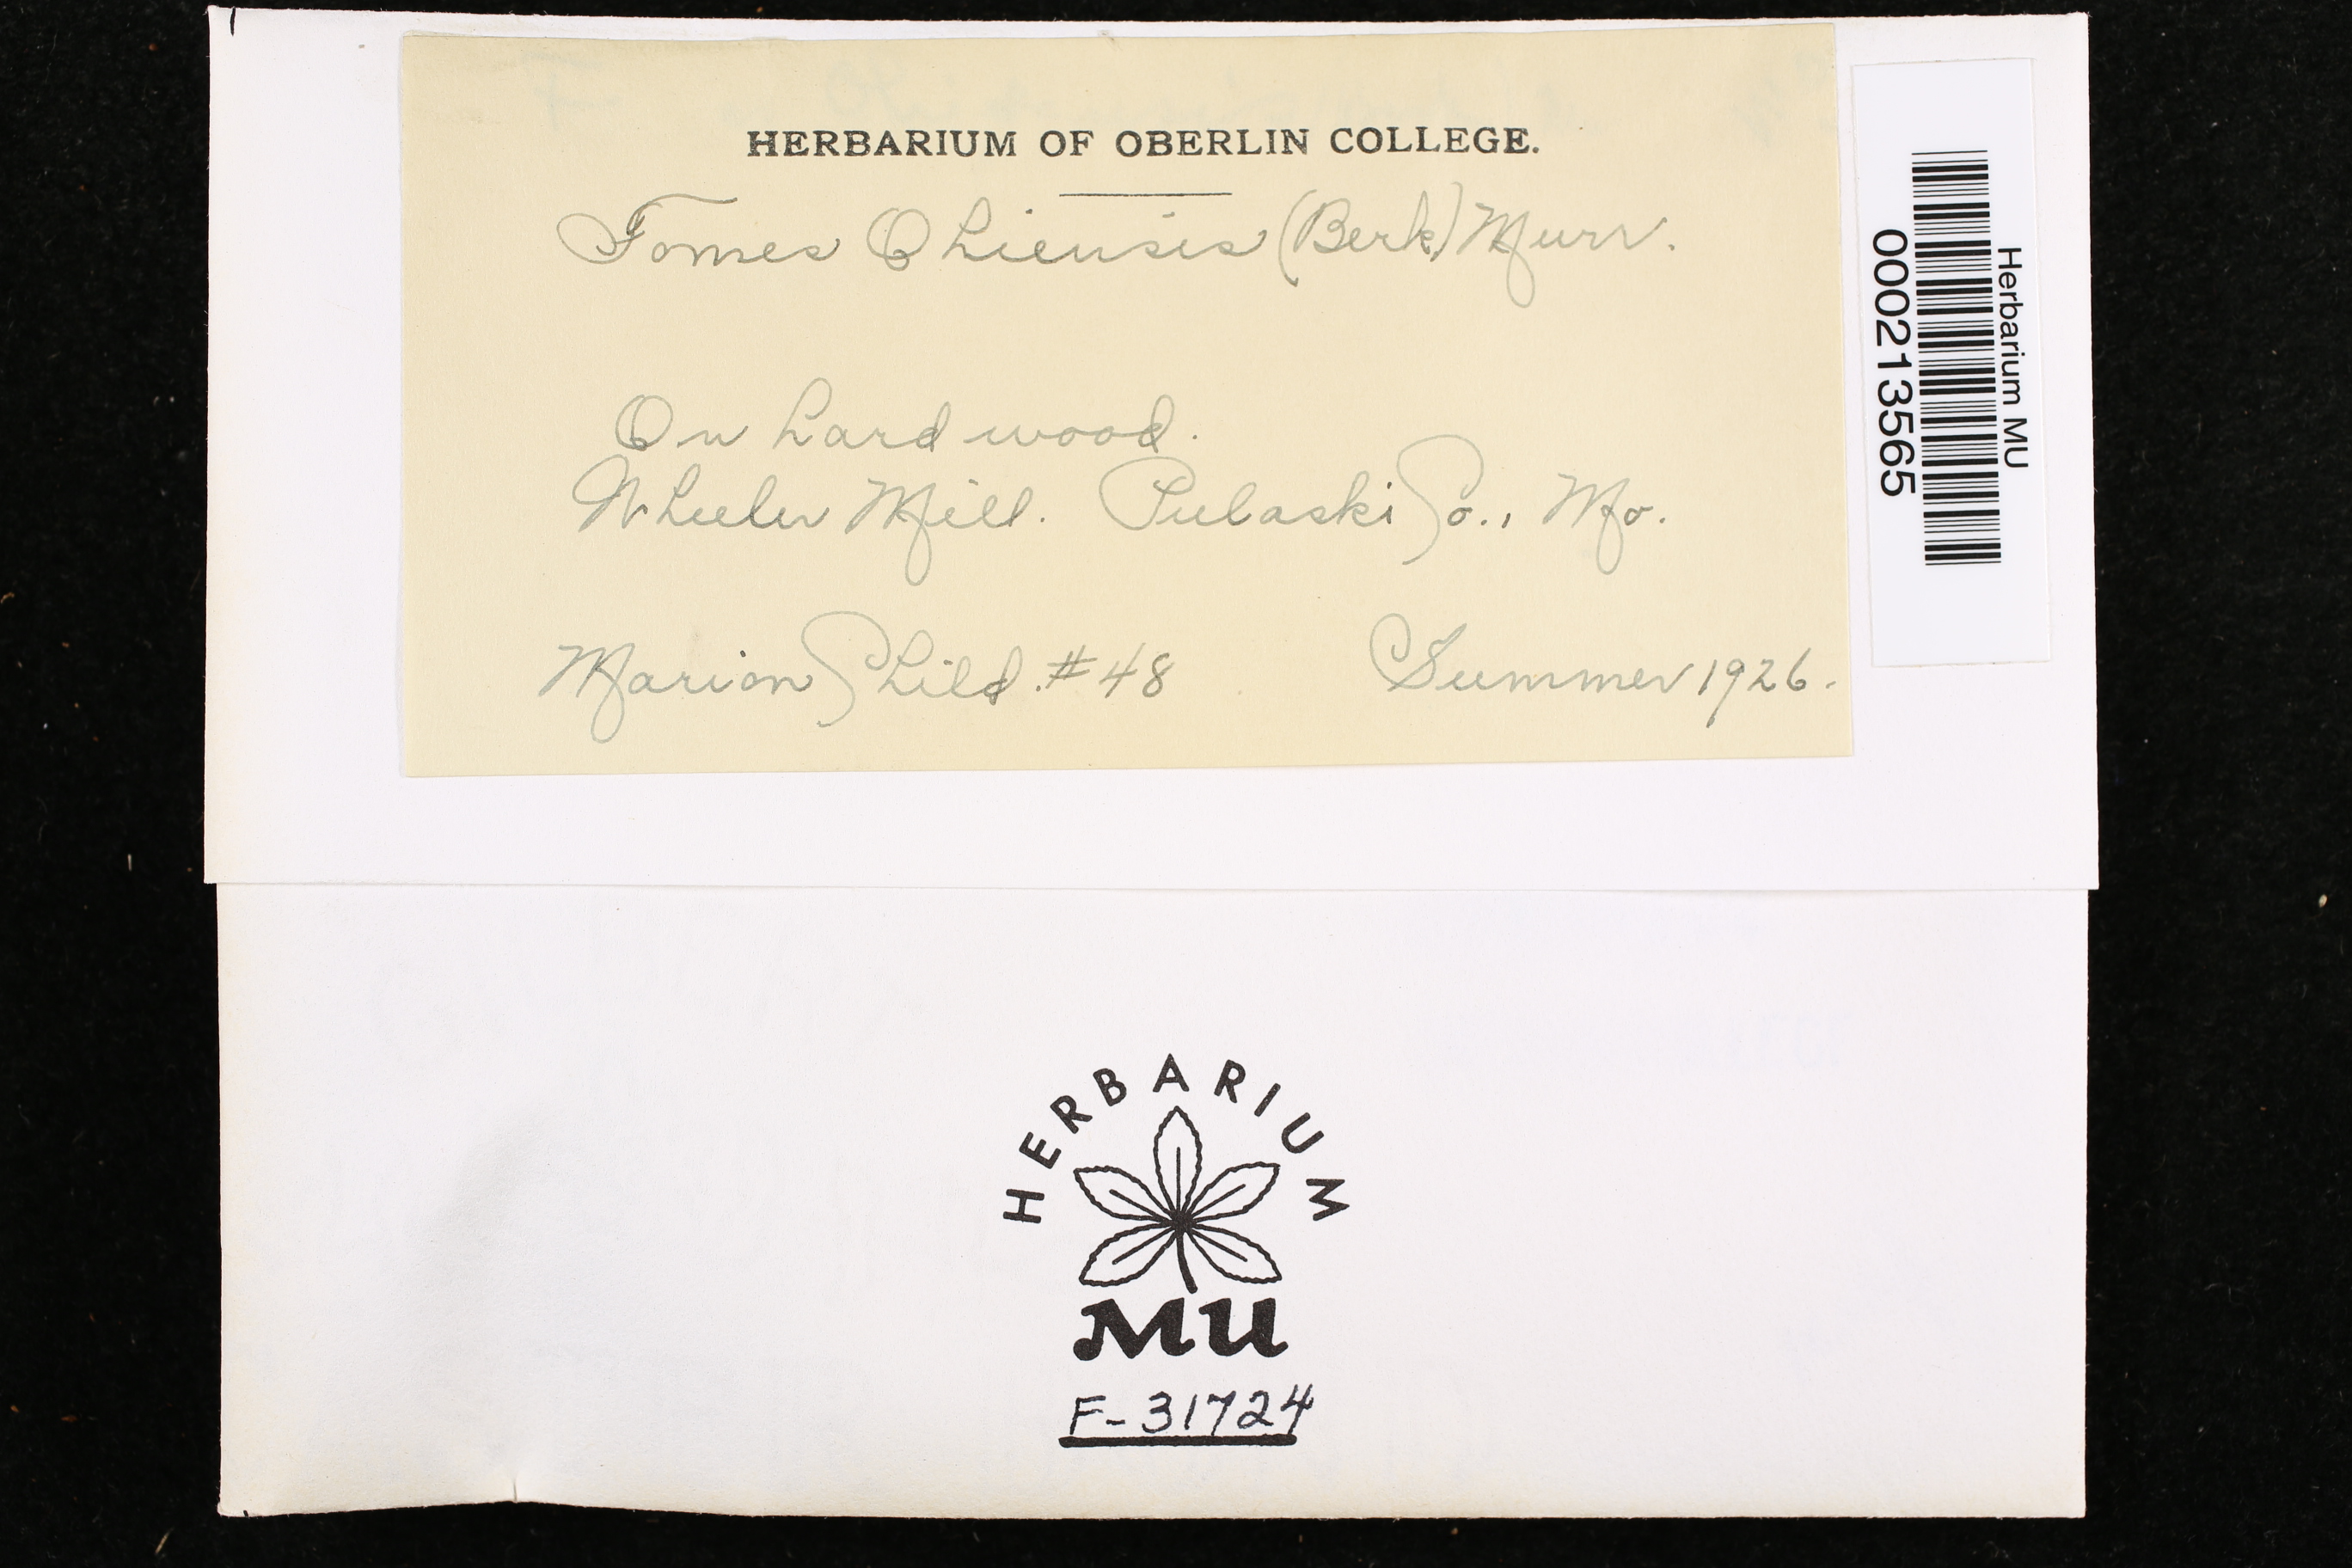 HERBARIUM OF OBERLIN COLLEGE.
Fomes Ohiensis (Berk) Murr.
On hard wood.
Wheeler Mill. Pulaski Co., Mo.
Marion Child. #48 Summer 1926.
Herbarium MU
000213565
HERBARIUM
MU
F-31724